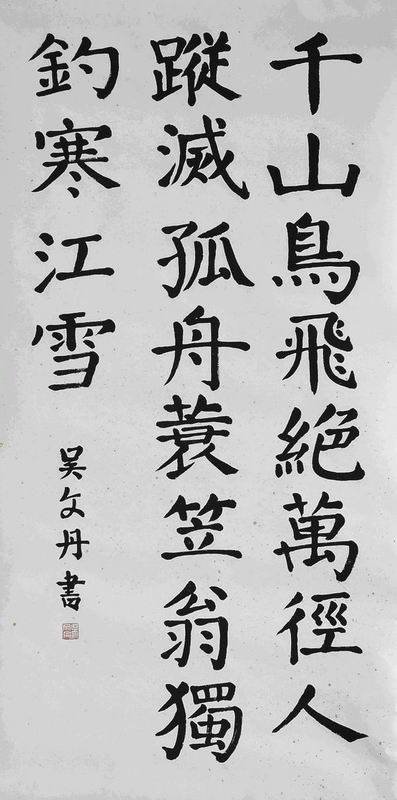 千山鳥飛絕萬徑人
蹤滅孤舟蓑笠翁獨
釣寒江雪
吳文丹書